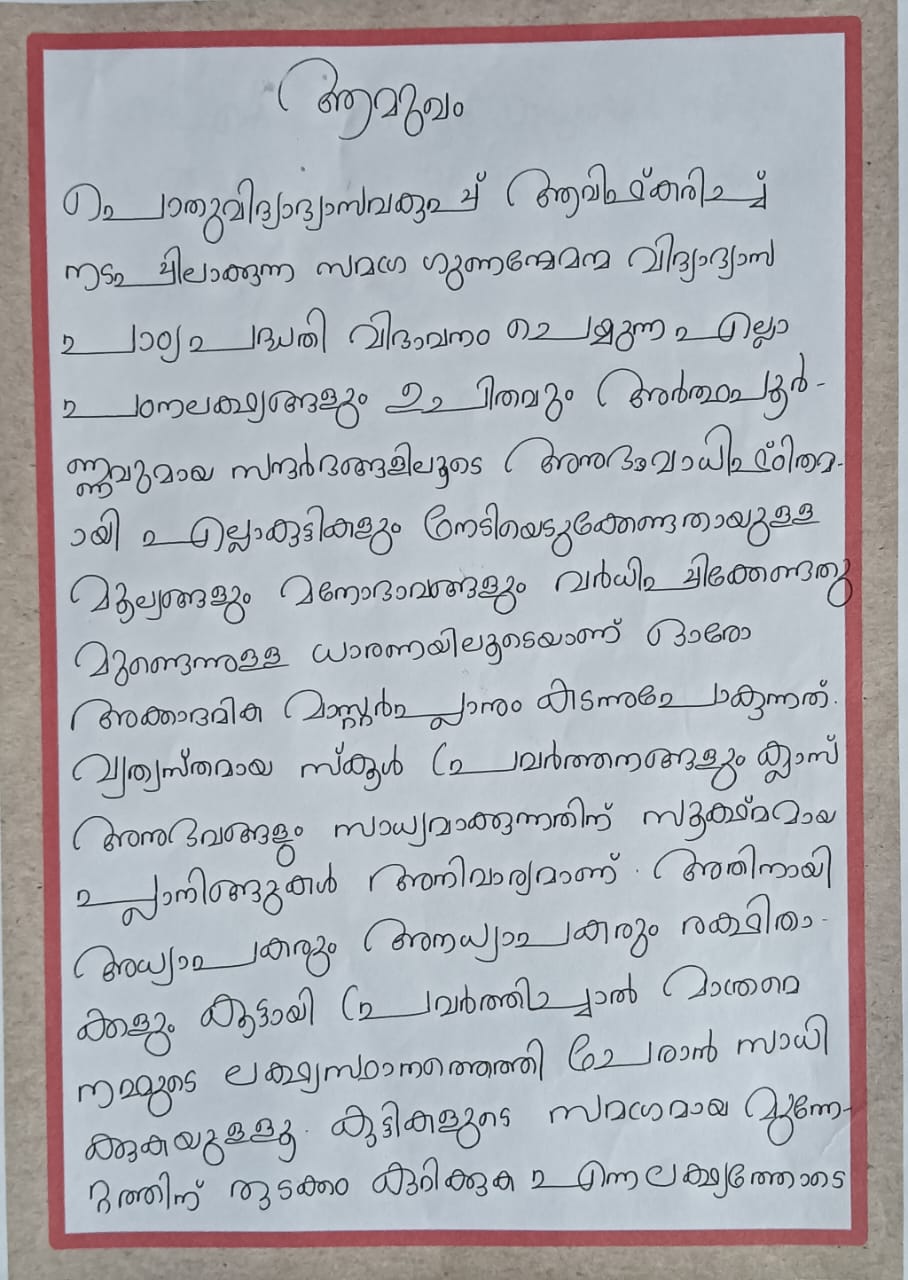 ആമുഖം
പൊതുവിദ്യാഭ്യാസവകുപ്പ് ആവിഷ്കരിച്ച്
നടപ്പിലാക്കുന്ന സമഗ്ര ഗുണമേന്മ വിദ്യാഭ്യാസ
പാഠ്യപദ്ധതി വിഭാവനം ചെയ്യുന്ന എല്ലാ
പഠനലക്ഷ്യങ്ങളും ഉചിതവും അർത്ഥപൂർ-
ണ്ണവുമായ സന്ദർഭങ്ങളിലൂടെ അനുഭവാധിഷ്ഠിതമ-
ായി എല്ലാകുട്ടികളും നേടിയെടുക്കേണ്ടതായുള്ള
മൂല്യങ്ങളും മനോഭാവങ്ങളും വർധിപ്പിക്കേണ്ടതു
മുണ്ടെന്നുള്ള ധാരണയിലൂടെയാണ് ഓരോ
അക്കാദമിക മാസ്റ്റർപ്ലാനും കടന്നുപോകുന്നത്.
വ്യത്യസ്തമായ സ്കൂൾ പ്രവർത്തനങ്ങളും ക്ലാസ്
അനുഭവങ്ങളും സാധ്യവാക്കുന്നതിന് സൂക്ഷ്മമായ
പ്ലാനിങ്ങുകൾ അനിവാര്യമാണ്. അതിനായി
അധ്യാപകരും അനധ്യാപകരും രക്ഷിതാ-
ക്കളും കൂട്ടായി പ്രവർത്തിച്ചാൽ മാത്രമെ
നമ്മുടെ ലക്ഷ്യസ്ഥാനത്തെത്തി ചേരാൻ സാധി
ക്കുകയുള്ളൂ. കുട്ടികളുടെ സമഗ്രമായ മുന്നേ-
റ്റത്തിന് തുടക്കം കുറിക്കുക എന്ന ലക്ഷ്യത്തോടെ